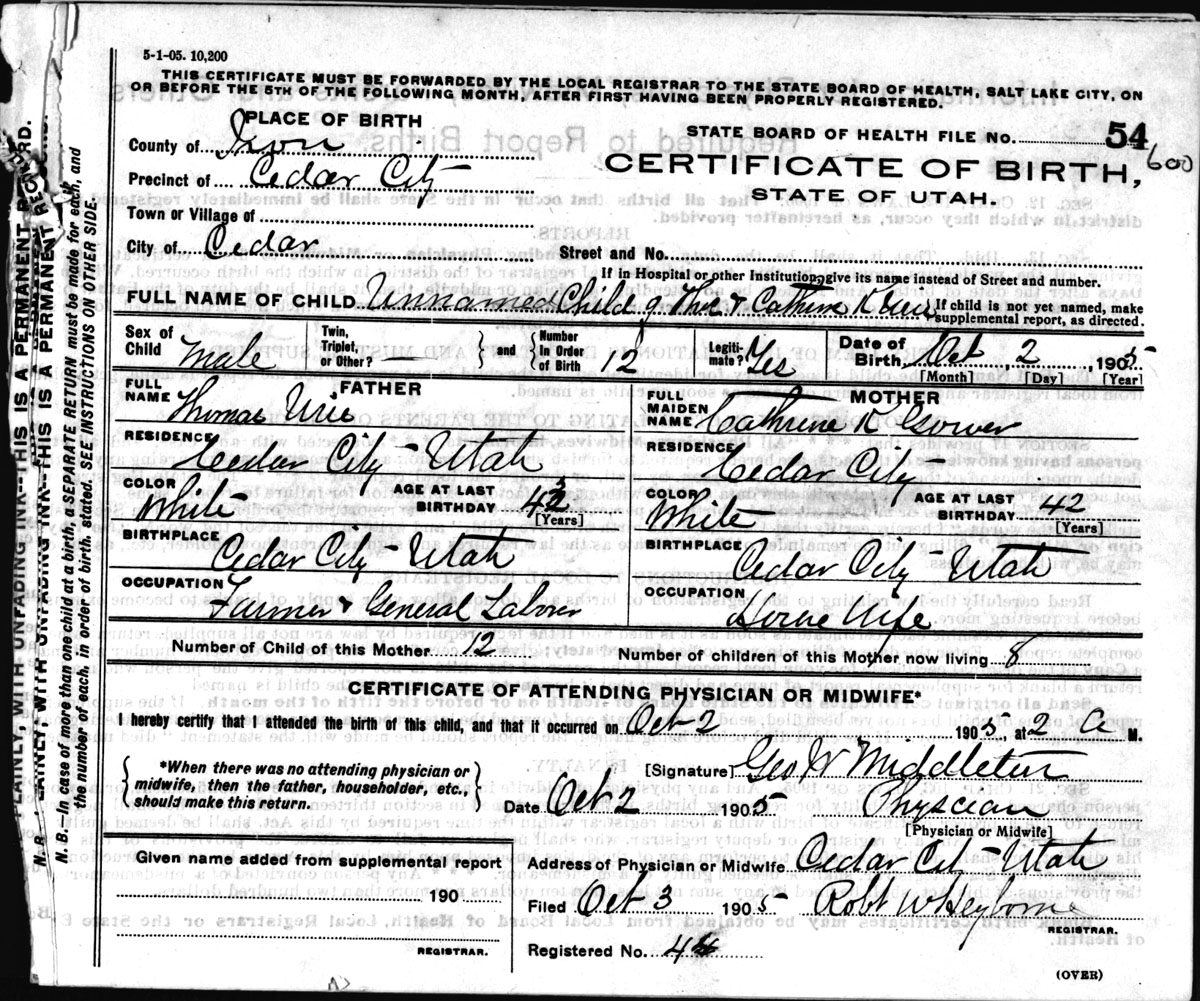 5-1-05. 10,200
THIS CERTIFICATE MUST BE FORWARDED BY THE LOCAL REGISTRAR TO THE STATE BOARD OF HEALTH, SALT LAKE CITY, ON
OR BEFORE THE 5TH OF THE FOLLOWING MONTH, AFTER FIRST HAVING BEEN PROPERLY REGISTERED.
PLACE OF BIRTH
STATE BOARD OF HEALTH FILE No. 54
600
County of Iron
CERTIFICATE OF BIRTH,
Precinct of Cedar City
STATE OF UTAH.
Town or Village of
City of Cedar
Street and No.
If in Hospital or other Institution, give its name instead of Street and number.
FULL NAME OF CHILD Unnamed Child of Thos & Cathrine K Urie
If child is not yet named, make
supplemental report, as directed.
Sex of Child Male
Twin, Triplet, or Other? —
and
Number In Order of Birth 12
Legiti-mate? Yes
Date of Birth, Oct 2 1905
[Month] [Day] [Year]
FATHER
FULL NAME Thomas Urie
RESIDENCE Cedar City - Utah
COLOR White
AGE AT LAST BIRTHDAY 43
[Years]
BIRTHPLACE Cedar City - Utah
OCCUPATION Farmer & General Laborer
MOTHER
FULL MAIDEN NAME Cathrine K Gower
RESIDENCE Cedar City
COLOR White
AGE AT LAST BIRTHDAY 42
[Years]
BIRTHPLACE Cedar City Utah
OCCUPATION House Wife
Number of Child of this Mother 12
Number of children of this Mother now living 8
CERTIFICATE OF ATTENDING PHYSICIAN OR MIDWIFE*
I hereby certify that I attended the birth of this child, and that it occurred on Oct 2 1905, at 2 A M.
*When there was no attending physician or
midwife, then the father, householder, etc.,
should make this return.
[Signature] Geo W Middleton
Date Oct 2 1905 Physcian
[Physician or Midwife]
Given name added from supplemental report
190
REGISTRAR.
Address of Physician or Midwife Cedar City - Utah
Filed Oct 3 1905 Robt W Heyborne
REGISTRAR.
Registered No.
(OVER)
PLAINLY, WITH UNFADING INK--THIS IS A PERMANENT RECORD.
N. B. In case of more than one child at a birth, a SEPARATE RETURN must be made for each, and
the number of each, in order of birth, stated. SEE INSTRUCTIONS ON OTHER SIDE.